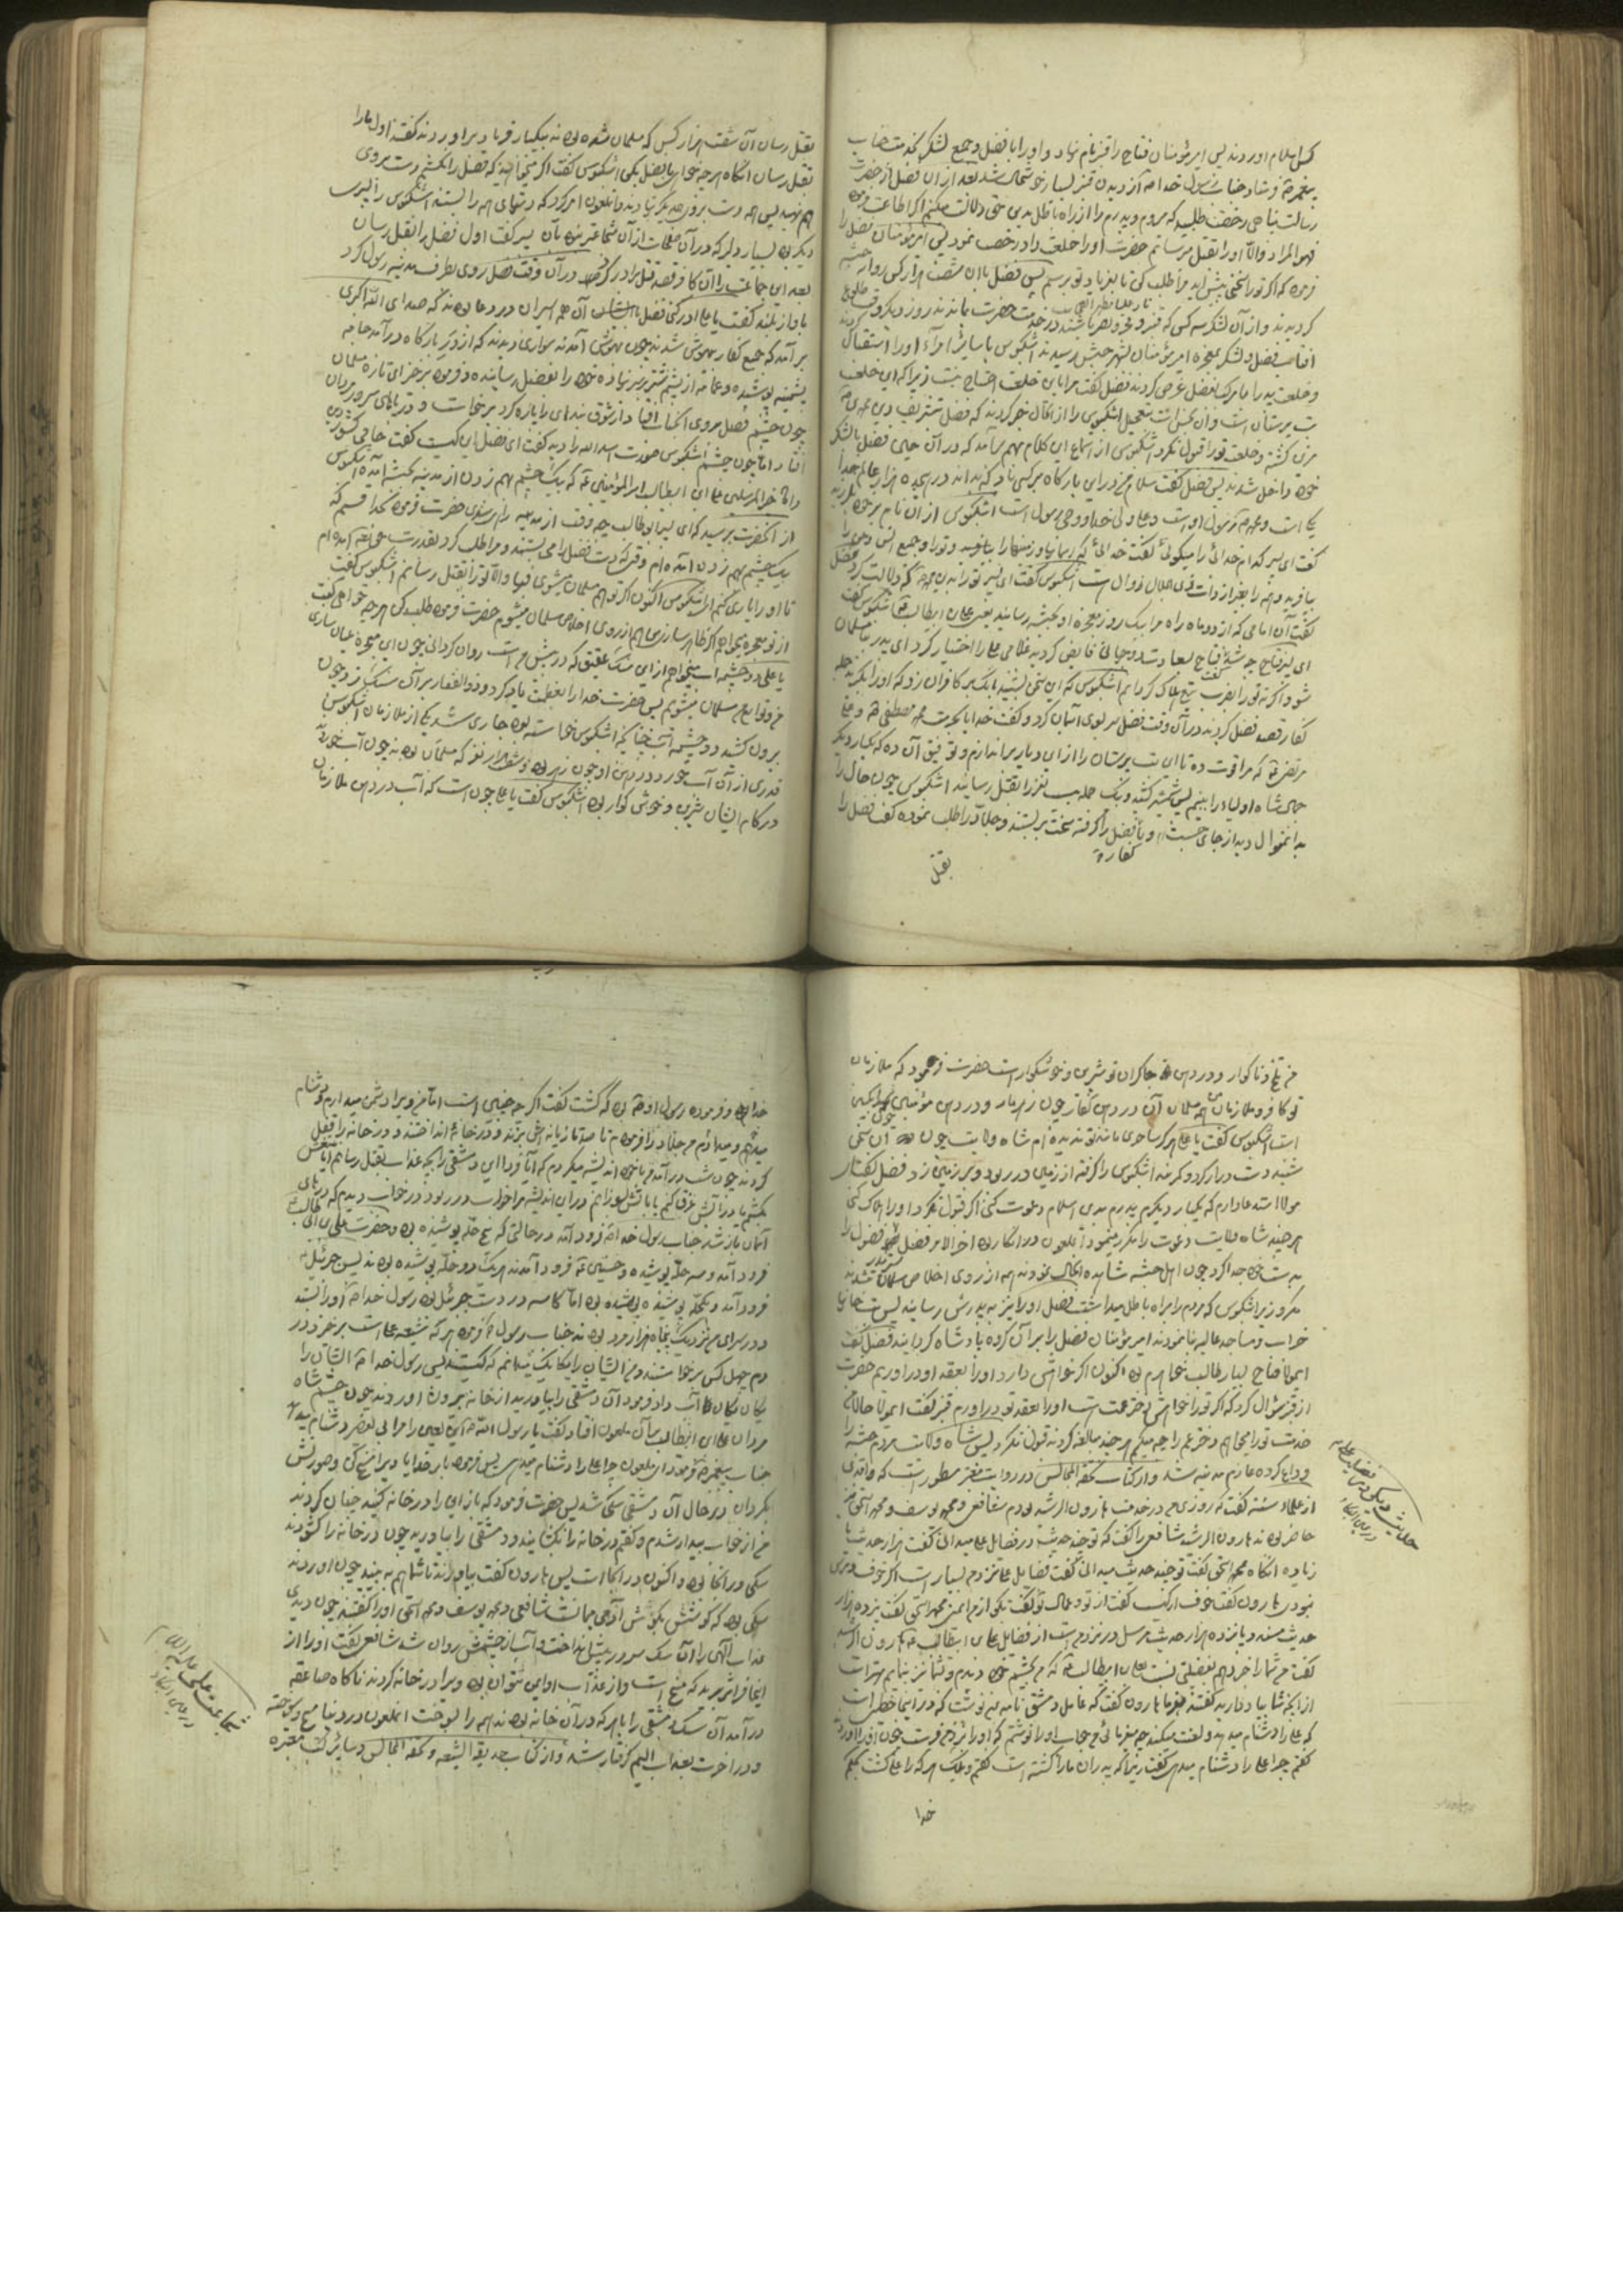 کس اسلام اوردند پس امیر مؤمنان فتاح را قنبر نام نهاد و او را با فضل و جمع لشکر بخدمت جناب
پیغمبر و شاد جناب رسول خدا از دیدن قنبر بسیار خوشحال شد بعد از ان فضل از حضرت
رسالت پناهی رخصت طلبید که میروم و پدرم را از راه باطل بدین حق دلالت میکنم اگر اطاعت نموده
فهو المراد والا او را بقتل میرسانم حضرت او را خلعت داد و رخصت نمود پس امیر مؤمنان فضل را
فرموده که اگر تو را سختی پیش اید مرا طلب کن تا بفریاد تو برسم پس فضل با ان شصت هزار کس روانه حبشه
کردیدند و از آن لشکر سه کس که قنبر و باشند در خدمت حضرت بماندند روز دیگر وقت طلوع
افتاب فضل و لشکر بمعجزه امیر مؤمنان بشهر حبش رسیدند اشکبوس با سایر امراء او را استقبال کردند
و خلعت پدر را با مرکب بفضل عرض کردند فضل گفت مرا باین خلعت احتیاج نیست زیرا که این خلعت
بت پرستان است و ان نجس است بتعجیل اشکبوس را از ان حال خبر کردند که فضل بتشریف دین محمدی
مزین گشته و خلعت تو را قبول نکرد اشکبوس از استماع این کلام بهم برآمد که در آن حین فضل با لشکر
خود داخل شدند پس فضل گفت سلام من در این بارگاه بر کسی باد که بداند در هیجده هزار عالم خدا
یکی است و محمد رسول اوست و علی ولی خدا و وصی رسول است اشکبوس از ان نام بر خود بلرزید
گفت ای پسر کدام خدائی را میگوئی گفت خدائی که آسمانها و زمینها را بیافرید و تو را و جمیع انس و جن را
بیافریده و همه را بغیر از ذات ذی جلال زوال است اشکبوس گفت ای پسر تو را بدین که دلالت کرد فضل
گفت آن امامی که از دو ماه راه مرا بیک روز بمعجزه او بحبشه رسانید یعنی علی ابن ابیطالب اشکبوس گفت
ای پسر فتاح چه شد گفت فتاح بسعادت دو جهانی فایض گردید غلامی علی را اختیار کرد ای پدر بیا مسلمان
شو و اگر نه تو را بضرب تیغ هلاک گردانم اشکبوس که این سخن بشنید بانک بر کافران زد که او را بگیرید جمله
کفار قصد فضل کردند در آن وقت فضل سر بسوی آسمان کرد و گفت خدایا بحرمت محمد مصطفی و علی
مرتضی که مرا قوت ده تا این بت پرستان را از این دیار براندازم و توفیق آن ده که یکبار دیگر
جمال شاه اولیا را ببینم پس شمشیر کشید و یک حمله بیست نفر را بقتل رسانید اشکبوس چون حال را
بدانمنوال دید از جای جست و با کفار فضل را گرفته سخت بربستند و جلاد را طلب نموده گفت فضل را
بقتل
بقتل رسان آن شصت هزار کس که مسلمان شده بودند بیکبار فریاد براوردند گفتند اول ما را
بقتل رسان انگاه هر چه خواهی با فضل بکن اشکبوس گفت اگر میخواهید که فضل را نکشم دست بر روی
هم نهید پس همه دست بر روی یکدیگر نهادند و انملعون امر کرد که دستهای همه را بستند اشکبوس را پسری
دیگر بود بسیار دلیر که در آن مملکت از آن شجاعتر نبود بآن پسر گفت اول فضل را بقتل رسان
بعد این جماعت را آن کافر قصد قتل برادر کرد در آن وقت فضل روی بطرف مدینه رسول کرد
باواز بلند گفت یا علی ادرکنی فضل با آن همه اسیران در دعا بودند که صدای الله اکبری
برآمد که جمیع کفار بیهوش شدند چون بهوش آمدند سواری دیدند که از در بارگاه درآمد جامه
پشمینه پوشیده و عمامه از پشم شتر بر سر نهاده خود را بفضل رسانیده و فرموده برخیز ای تازه مسلمان
چون چشم فضل بروی انجناب افتاد از شوق بندهای را پاره کرد برخواست و در پاهای سرور مردان
افتاد اما چون چشم اشکبوس بصورت اسدالله را دید گفت ای فضل این کیست گفت حامی کشور دین
داماد خیر المرسلین علی ابن ابیطالب امیر المؤمنین که بیک چشم بهم زدن از مدینه بحبشه آمده اشکبوس
از آنحضرت پرسید که ای پسر ابوطالب چه وقت از مدینه راهی شدی حضرت فرموده بخدا قسم که
بیک چشم بهم زدن آمده ام وقتی که دست فضل را می بستند و مرا طلب کرد بقدرت حق تعالی آمده ام
تا او را یاری کنم ای اشکبوس اکنون اگر تو هم مسلمان میشوی فبها والا تو را بقتل رسانم اشکبوس گفت
از تو معجزه میخواهم اگر ظاهر سازی هم از روی اخلاص مسلمان میشوم حضرت فرموده طلب کن هر چه خواهی گفت
یا علی دو چشمه اب میخواهم از این سنک عقیق که در پیش من است روان گردانی چون این معجزه عیان سازی
من و توابع من مسلمان میشویم پس حضرت خدا را بعظمت یاد کرد و ذوالفقار بر آن سنک زد چون
برون کشید دو چشمه آب چنانکه اشکبوس خواسته بود جاری شد یکی از ملازمان اشکبوس
قدری از آن آب خورد در دهن او چون زهر بود و شصت هزار نفر که مسلمان بودند چون آب خوردند
در کام ایشان شیرین و خوش گوار بود اشکبوس گفت یا علی چون است که آب در دهن ملازمان
من تلخ و ناگوار و در دهن چاکران تو شیرین و خوشگوار است حضرت فرمود که ملازمان
تو کافر و ملازمان من همه مسلمان آب در دهن کفار چون زهر مار و در دهن مؤمنین چون انگبین
است اشکبوس گفت یا علی هرگز ساحری مانند تو ندیده ام شاه ولایت چون آن سخن
شنید دست دراز کرد و کمربند اشکبوس را گرفته از زمین در ربود و بر زمین زد فضل گفت
مولا استدعا دارم که یکبار دیگر پدرم بدین اسلام دعوت کنی اگر قبول نکرد او را هلاک کنی
هر چند شاه ولایت دعوت را مکرر مینمود آنملعون در انکار بود اخر الامر فضل سر فضول را
بدست خود جدا کرد چون اهل حبشه مشاهده انحال نمودند همه از روی اخلاص مسلمان شدند
مگر وزیر اشکبوس که مردم را براه باطل میداشت فضل او را نیز به پدرش رسانید پس بتخانها
خراب و مساجد عالیه بنا نمودند امیر مؤمنان فضل را بر آن گروه پادشاه گردانید فضل گفت
ایمولا فتاح بسیار طالب خواهرم بود اکنون اگر خواهش دارد او را بعقد او دراوریم حضرت
از قنبر سؤال کرد که اگر تو را خواهش دخترعمت است او را بعقد تو دراورم قنبر گفت ایمولا حالا من
خدمت تو را میخواهم دختر عم را چه میکنم هر چند مبالغه کردند قبول نکرد پس شاه ولایت مردم حبشه را
وداع کرده عازم مدینه شد و از کتاب تحفة المجالس در روایت معتبر مسطور است که واقدی
از علماء سنة گفت که روزی من در خدمت هارون الرشید بودم شافعی و محمد یوسف و محمد اسحق نیز
حاضر بودند هارون الرشید شافعی را گفت که تو چند حدیث در فضایل علی میدانی گفت هزار حدیث یا
زیاده انگاه محمد اسحق گفت تو چند حدیث میدانی گفت فضایل علی نزد من بسیار است اگر خوف
نبودی هارون گفت خوف از کیست گفت از تو و عمال تو گفت بگو از من ایمنی محمد اسحق گفت پانزده هزار
حدیث مسند و پانزده هزار حدیث مرسل در نزد من است از فضایل علی ابن ابیطالب هارون الرشید
گفت من شما را خبر دهم بفضیلتی نسبت بعلی ابن ابیطالب که من بچشم خود دیدم و شما نیز بهتر است
از انچه شما یاد دارید گفتند بفرما هارون گفت که عامل دمشق نامه بمن نوشت که در اینجا خطیبی است
که علی را دشنام میدهد و لعنت میکند چه میفرمائی من جواب او را نوشتم که او را نزد من فرست چون او را آوردند
گفتم چرا علی را دشنام میدهی گفت زیرا که پدران ما را کشته است گفتم هر که را علی کشت بحکم
خدا
حدیث دیگر در فضیلت علی
خدا بود و فرموده رسول او بود که گشت گفت اگر چه چنین است اما من ویرا دشمن میدارم و دشنام
میدهم جلاد را فرمودم تا صد تازیانه اش بزند و در خانه انداختند و در خانه را قفل
کردند چون شب درآمد من با خود اندیشه میکردم که آیا فردا این دمشقی را بچه عذاب بقتل رسانم
بکشم یا در آتش غرق کنم یا باتش بسوزانم در این اندیشه مرا خواب در ربود در خواب دیدم که درهای
آسمان باز شد جناب رسول خدا فرود آمد در حالتی که پنج حله پوشیده بود و حضرت علی ابن ابی طالب
فرود آمد و سه حله پوشیده و حسنین فرود آمدند هر یک دو حله پوشیده بودند پس جبرئیل
فرود آمد و یکحله پوشیده بود اما کاسه در دست جبرئیل بود رسول خدا او را بستد
و در سرای من نزدیک پنجاه هزار مرد بودند جناب رسول فرموده هر که شیعه علی است برخیزد در
دم چهل کس برخواستند و من ایشان را یکایک میدانم که کیستند پس رسول خدا ایشان را
یکان یکان آب داد و فرمود آن دمشقی را بیاورید از خانه بیرون اوردند چون چشم شاه
مردان علی ابن ابیطالب بر آن ملعون افتاد گفت یا رسول الله این لعین مرا بی تقصیر دشنام میدهد
جناب پیغمبر فرمود ای ملعون چرا علی را دشنام میدهی پس فرموده بار خدایا ویرا مسخ کن و صورتش
بگردان در حال آن دمشقی سگی شد پس حضرت فرمود که باز این را در خانه کنید چنان کردند
من از خواب بیدار شدم و گفتم در خانه را بگشایند و دمشقی را بیاورید چون در خانه را گشودند
سگی در آنجا بود و اکنون در آنجا است پس هارون گفت بیاورند تا شما هم ببینید چون اوردند
سگی بود که گوشش بگوش آدمی میمانست شافعی و یوسف و محمد اسحق او را گفتند چون دیدی
عذاب الهی را آن سک سر در پیش انداخت و آب از چشمش روان شد شافعی گفت او را از
اینجا فراتر برید که مسخ است و از عذاب او ایمن نتوان بود ویرا در خانه کردند ناگاه صاعقه
درآمد آن سک دمشقی را با هر که در آن خانه بودند همه را بسوخت انملعون در دنیا مسخ و سوخته
و در اخرت بعذاب الیم گرفتار شد و از کتاب حدیقة الشیعه و تحفة المجالس و سایر کتب معتبره
شجاعت علی علیه السلام